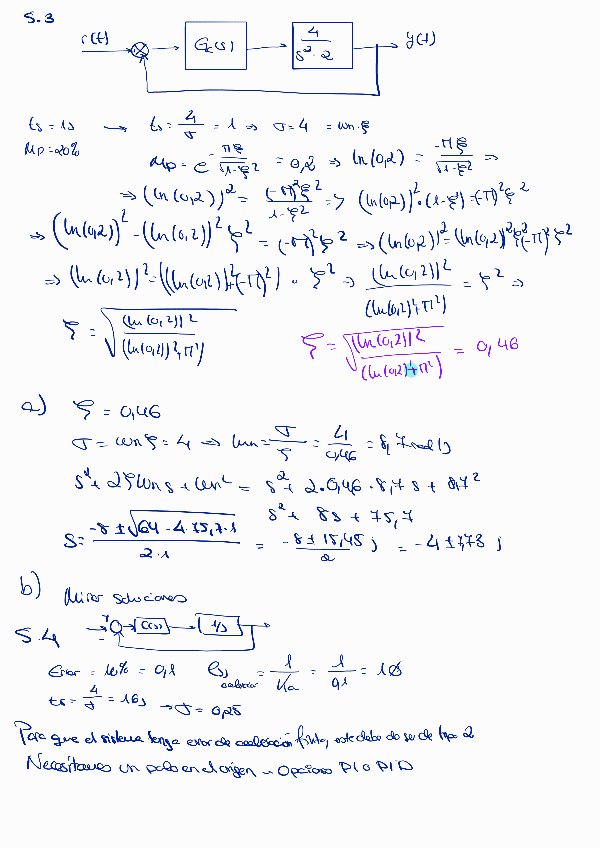 5.3
r(t) Gc(s) 4/(s²·2) y(t)
ts = 1s → ts = 4/σ = 1 ⇒ σ = 4 = ωn·ξ
Mp = 20% Mp = e^(-πξ/√(1-ξ²)) = 0,2 ⇒ ln(0,2) = -πξ/√(1-ξ²) ⇒
⇒ (ln(0,2))² = (-π)²ξ²/(1-ξ²) => (ln(0,2))²·(1-ξ²) = (-π)²ξ²
⇒ (ln(0,2))² - (ln(0,2))² ξ² = (-π)²ξ² ⇒ (ln(0,2))² = (ln(0,2))²ξ²+(-π)²ξ²
⇒ (ln(0,2))² = ((ln(0,2))²+(-π)²) · ξ² ⇒ (ln(0,2))²/((ln(0,2))²+π²) = ξ² ⇒
ξ = √((ln(0,2))²/((ln(0,2))²+π²)) ξ = √((ln(0,2))²/((ln(0,2))²+π²)) = 0,46
a) ξ = 0,46
σ = ωn ξ = 4 ⇒ ωn = σ/ξ = 4/0,46 = 8,7 rad/s
s² + 2ξωn s + ωn² = s² + 2·0,46·8,7 s + 8,7²
s² + 8s + 75,7
S = (-8 ± √(64 - 4·75,7·1))/(2·1) = (-8 ± 15,45 j)/2 = -4 ± 7,73 j
b) Mirar soluciones
5.4 C(s) 1/s
Error = 10% = 0,1 ess aceleracion = 1/Ka = 1/0,1 = 10
ts = 4/σ = 16s → σ = 0,25
Para que el sistema tenga error de aceleración finito, este debe de ser de tipo 2
Necesitamos un polo en el origen → Opciones PI o PID